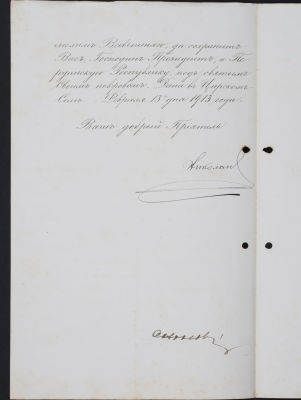 молимъ Всевышняго, да сохранитъ
Васъ, Господинъ Президентъ, и Пе-
руанскую Республику подъ святымъ
Своимъ покровомъ. Дана въ Царскомъ
Селѣ. Февраля 13го дня 1913 года.
Вашъ добрый Пріятель
Николай